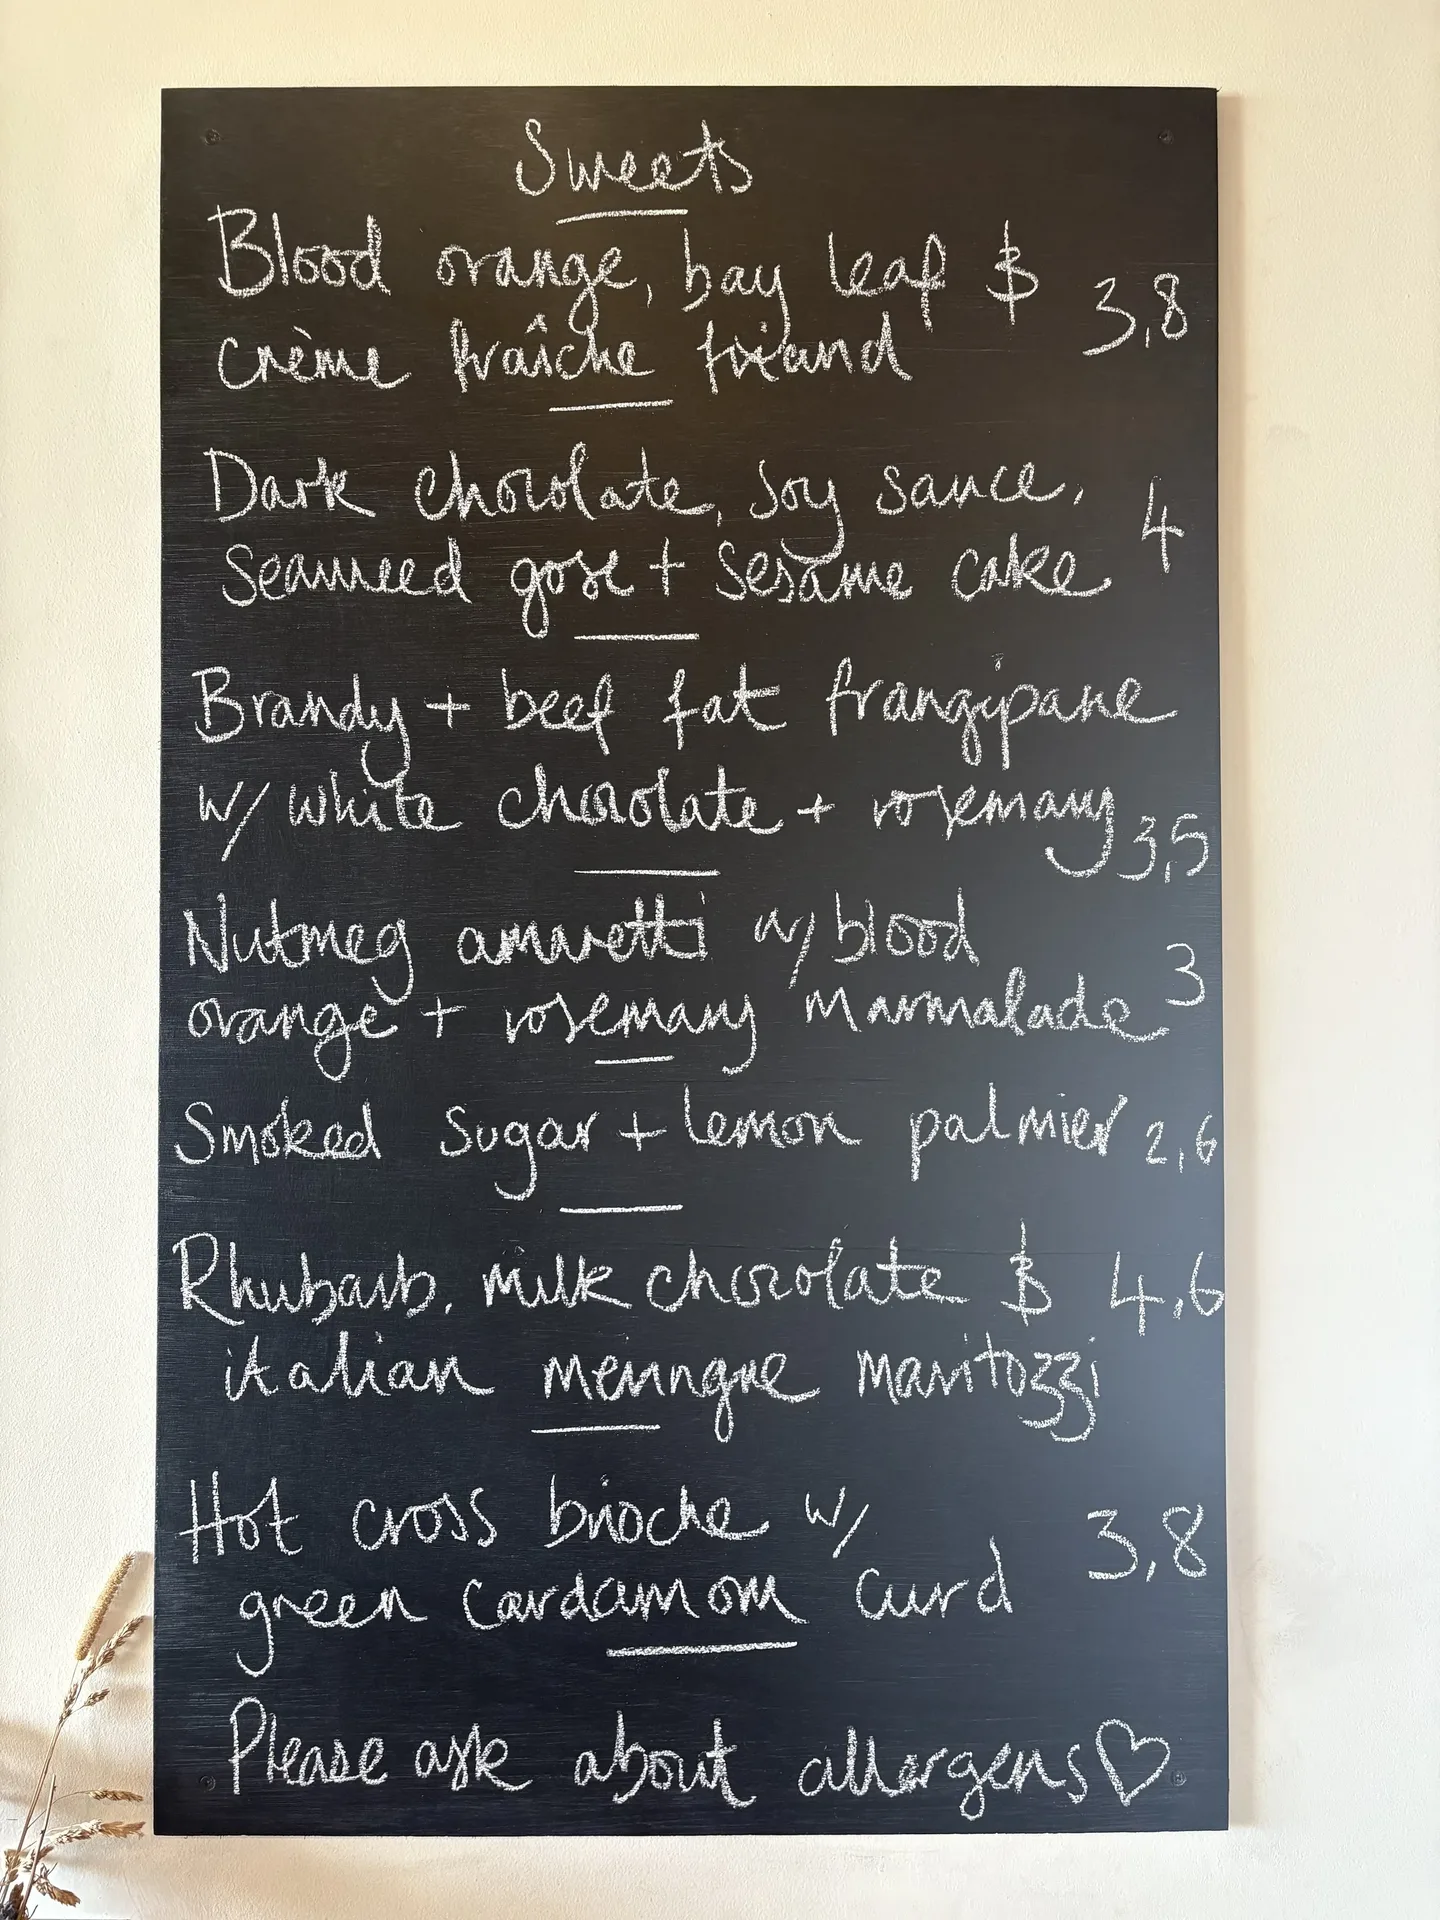 Sweets
Blood orange, bay leaf &
crème fraîche friand 3,8
Dark chocolate, soy sauce,
seaweed gose + sesame cake 4
Brandy + beef fat frangipane
w/ white chocolate + rosemary 3,5
Nutmeg amaretti w/ blood
orange + rosemary marmalade 3
Smoked sugar + lemon palmier 2,6
Rhubarb, milk chocolate & 4,6
italian meringue maritozzi
Hot cross brioche w/ 3,8
green cardamom curd
Please ask about allergens ♡